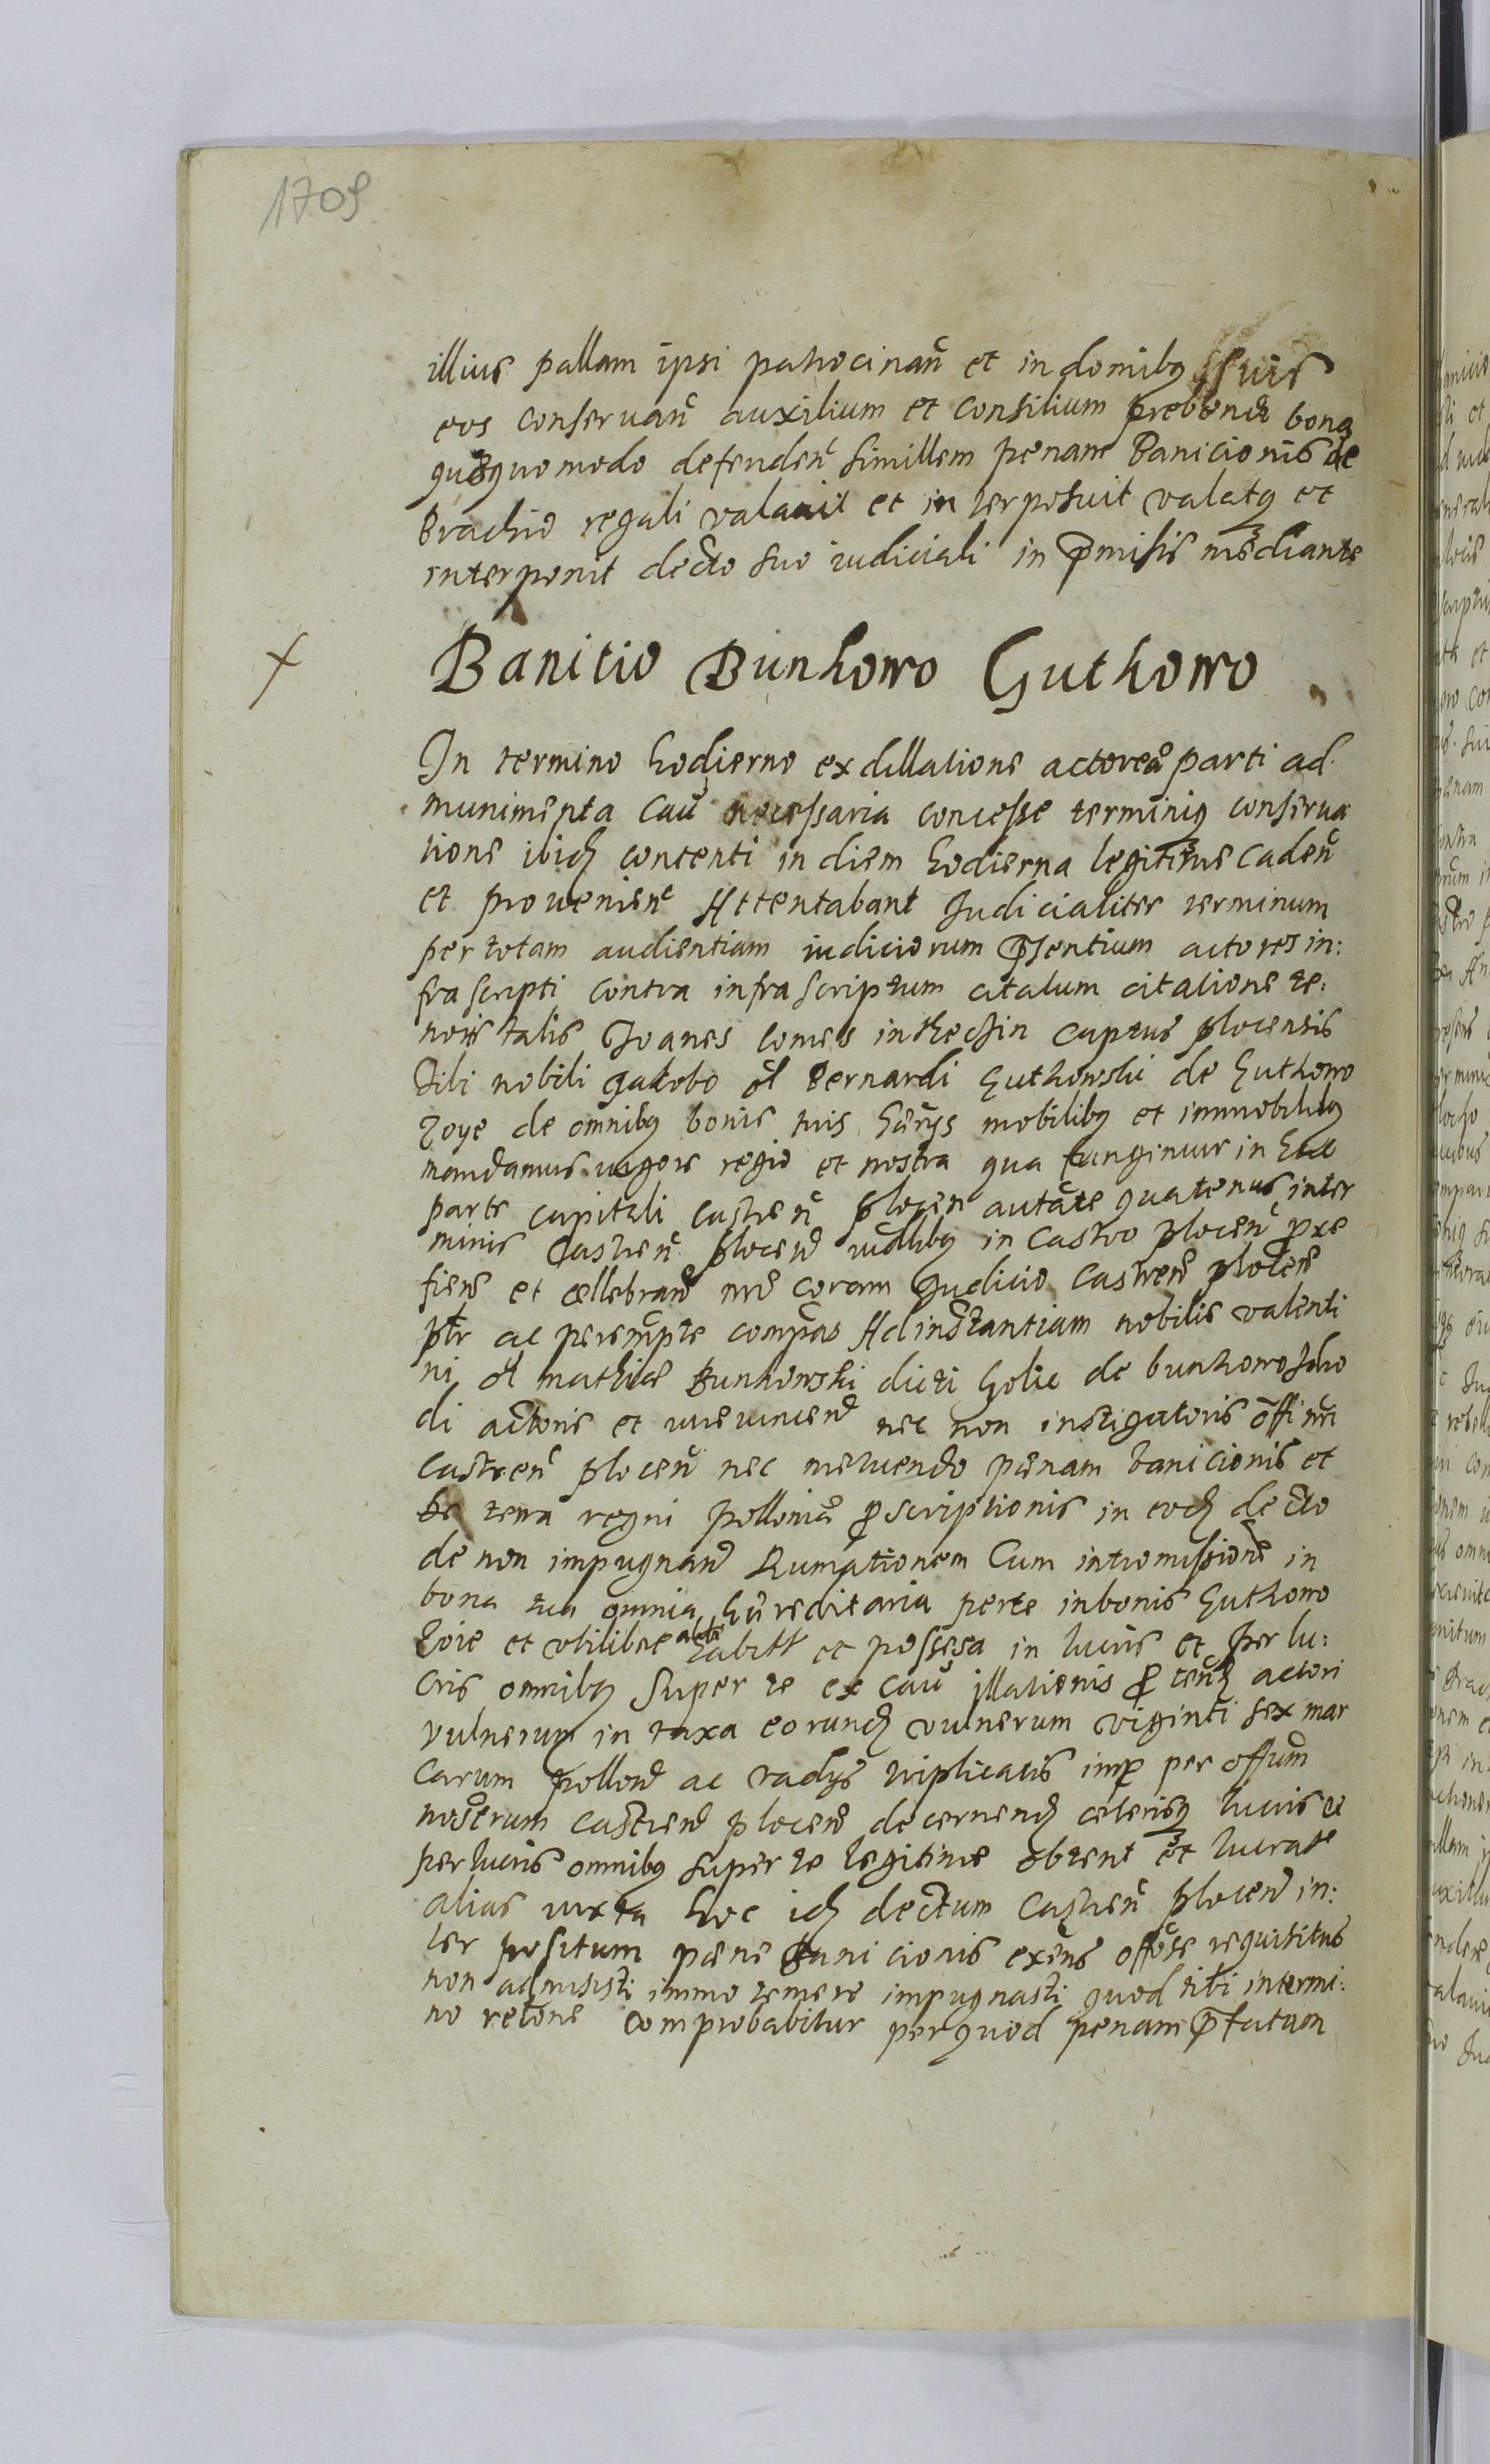 1709
illius pallam ipsi patrocinan̄ et in domibq suis
eos conservan̄ auxilium et consilium prebend bonaq
quoquomodo defenden̄ simillem penam Banicionis de
Brachio regali valavit et interposuit valatq et
interponit decto suo iudiciali in p̄misis mediante
x Banitio Bunkowo Guthowo
In termino hodierno ex dillatione actoreæ parti ad
munimenta cau necessaria concesse terminiq conserva
tione ibidē contenti in diem hodierna legittime caden̄
et provenien̄ Attentabant Judicialiter terminum
per totam audientiam iudiciorum p̄sentium actores in:
frascripti contra infrascriptum citatum citatione te:
noris talis Joanes comes in thechin captus plocensis
Tibi nobili Jakobo ol Bernardi Guthowski de Guthowo
Zoye de omnibq bonis tuis hærys mobilibq et immobilibq
mandamus vigore regio et nostra qua fungimur in hac
parte capitali castren̄ plocen̄ autate quatenus in ter
minis castren̄ plocen̄ iudlibq in castro plocen̄ proxe
fien̄ et cellebran̄ nrē coram Judicio castren̄ plocen̄
ptr ac perempte compas Ad instantiam nobilis valenti
ni ol mathiæ Bunkowski dicti Golic de bunkowo scho
di actoris et iure vincen̄ nec non instigatoris offi nri
castren̄ plocen̄ nec metuendo pænam banicionis et
de terra regni polloniæ proscriptionis in eodē decto
de non impugnan̄ Rumationem Cum intromissione in
bona tua omnia hæreditaria perte in bonis Guthowo
Zoie et utilibet alibi habitt et possessa in lucris et per lu:
cris omnibq super te ex cau illationis p̄ tend actori
vulnerum in taxa eorundē vulnerum viginti sex mar
carum pollon̄ ac vadys triplicatis imp per offium
nostrum castren̄ plocen̄ decernendē ceterisq lucris et
perlucris omnibq super te legitime obtent et lucrate
alias iuxta hoc idē dectum castren̄ plocen̄ in:
ter positum pæne Banicionis exens offose requisitus
non admisisti immo temere impugnasti quod tibi in termi:
no retone comprobabitur per quod penam p̄fatam